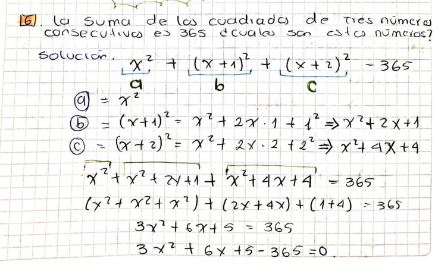 16. La suma de los cuadrados de tres números
consecutivos es 365 ¿cuales son estos números?
Solución. x² + (x+1)² + (x+2)² = 365
a b c
ⓐ = x²
ⓑ = (x+1)² = x² + 2x·1 + 1² ⇒ x²+2x+1
ⓒ = (x+2)² = x² + 2x·2 + 2² ⇒ x²+4x+4
x² + x² + 2x+1 + x²+4x+4 = 365
(x² + x² + x²) + (2x+4x) + (1+4) = 365
3x² + 6x + 5 = 365
3x² + 6x + 5 - 365 = 0.